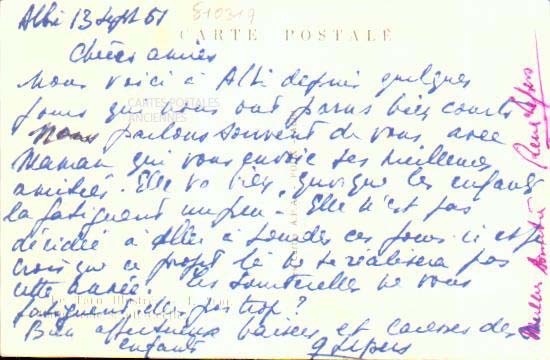 Albi 13 Sept 61
810319
CARTE POSTALE
Chères amies
Nous voici à Albi depuis quelques
jours qui nous ont parus bien courts
CARTES POSTALES
ANCIENNES
Nous parlons souvent de vous avec
Maman qui vous envoie ses meilleures
amitiés. Elle va bien, quoique les enfants
la fatiguent un peu. Elle n'est pas
décidée à aller à ces jours-ci et je
crois que ce projet là ne se réalisera pas
cette année. Les sauterelles ne vous
fatiguent elles pas trop?
Bien affectueux baisers et caresses des
enfants
Meilleures amitiés René